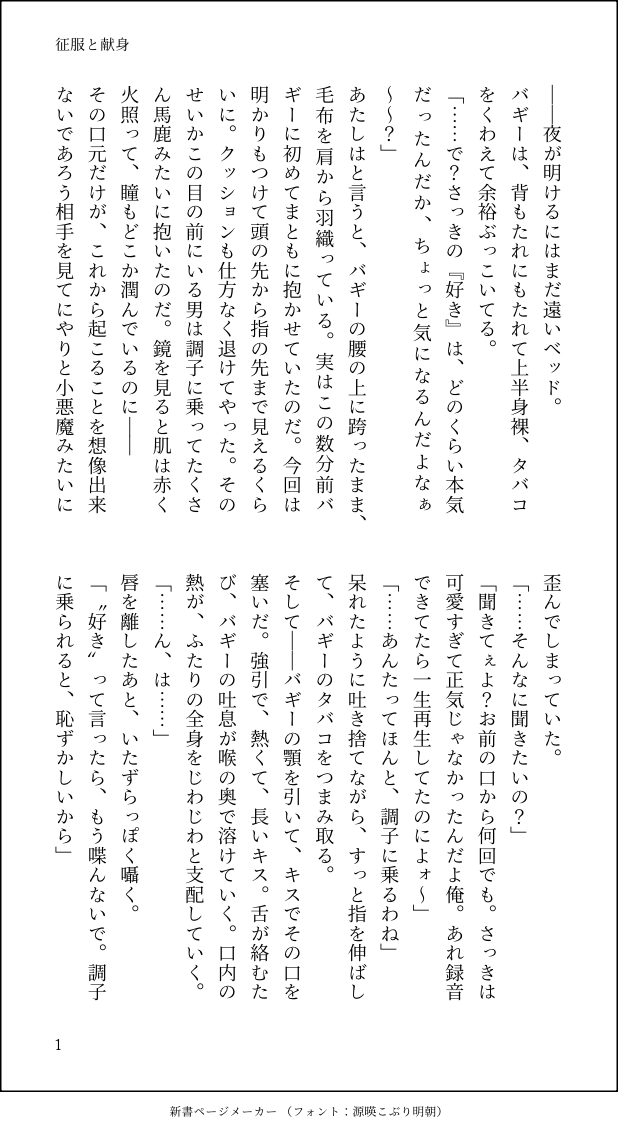 征服と献身
――夜が明けるにはまだ遠いベッド。
バギーは、背もたれにもたれて上半身裸、タバコ
をくわえて余裕ぶっこいてる。
「……で？さっきの『好き』は、どのくらい本気
だったんだか、ちょっと気になるんだよなぁ
～～？」
あたしはと言うと、バギーの腰の上に跨ったまま、
毛布を肩から羽織っている。実はこの数分前バ
ギーに初めてまともに抱かせていたのだ。今回は
明かりもつけて頭の先から指の先まで見えるくら
いに。クッションも仕方なく退けてやった。その
せいかこの目の前にいる男は調子に乗ってたくさ
ん馬鹿みたいに抱いたのだ。鏡を見ると肌は赤く
火照って、瞳もどこか潤んでいるのに――
その口元だけが、これから起こることを想像出来
ないであろう相手を見てにやりと小悪魔みたいに
歪んでしまっていた。
「……そんなに聞きたいの？」
「聞きてぇよ？お前の口から何回でも。さっきは
可愛すぎて正気じゃなかったんだよ俺。あれ録音
できてたら一生再生してたのによォ～」
「……あんたってほんと、調子に乗るわね」
呆れたように吐き捨てながら、すっと指を伸ばし
て、バギーのタバコをつまみ取る。
そして――バギーの顎を引いて、キスでその口を
塞いだ。強引で、熱くて、長いキス。舌が絡むた
び、バギーの吐息が喉の奥で溶けていく。口内の
熱が、ふたりの全身をじわじわと支配していく。
「……ん、は……」
唇を離したあと、いたずらっぽく囁く。
「〝好き〟って言ったら、もう喋んないで。調子
に乗られると、恥ずかしいから」
1
新書ページメーカー（フォント：源暎こぶり明朝）